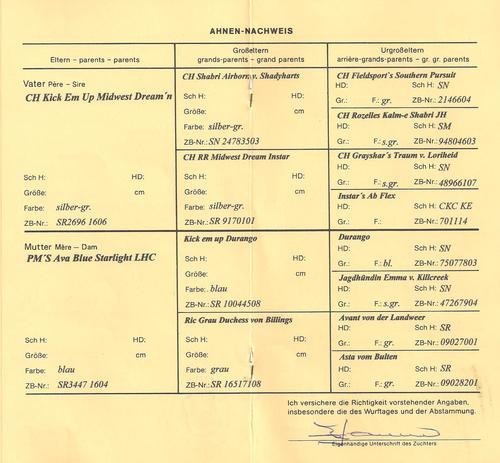 AHNEN-NACHWEIS
Eltern - parents - parents
Großeltern
grands-parents - grand parents
Urgroßeltern
arrière-grands-parents - gr. gr. parents
Vater Père - Sire
CH Kick Em Up Midwest Dream´n
Sch H: HD:
Größe: cm
Farbe: silber-gr.
ZB-Nr.: SR2696 1606
Mutter Mère - Dam
PM´S Ava Blue Starlight LHC
Sch H: HD:
Größe: cm
Farbe: blau
ZB-Nr.: SR3447 1604
CH Shabri Airborn v. Shadyharts
Sch H: HD:
Größe: cm
Farbe: silber-gr.
ZB-Nr.: SN 24783503
CH RR Midwest Dream Instar
Sch H: HD:
Größe: cm
Farbe: silber-gr.
ZB-Nr.: SR 9170101
Kick em up Durango
Sch H: HD:
Größe: cm
Farbe: blau
ZB-Nr.: SR 10044508
Ric Grau Duchess von Billings
Sch H: HD:
Größe: cm
Farbe: grau
ZB-Nr.: SR 16517108
CH Fieldsport's Southern Pursuit
HD: Sch H: SN
Gr.: F.: gr. ZB-Nr.: 2146604
CH Rozelles Kalm-e Shabri JH
HD: Sch H: SM
Gr.: F.: s.gr. ZB-Nr.: 94804603
CH Grayshar's Traum v. Loriheid
HD: Sch H: SN
Gr.: F.: s.gr. ZB-Nr.: 48966107
Instar´s Ab Flex
HD: Sch H: CKC KE
Gr.: F.: ZB-Nr.: 701114
Durango
HD: Sch H: SN
Gr.: F.: bl. ZB-Nr.: 75077803
Jagdhündin Emma v. Killcreek
HD: Sch H: SN
Gr.: F.: s.gr. ZB-Nr.: 47267904
Avant von der Landweer
HD: Sch H: SR
Gr.: F.: gr. ZB-Nr.: 09027001
Asta vom Bulten
HD: Sch H: SR
Gr.: F.: gr. ZB-Nr.: 09028201
Ich versichere die Richtigkeit vorstehender Angaben,
insbesondere die des Wurftages und der Abstammung.
Eigenhändige Unterschrift des Züchters